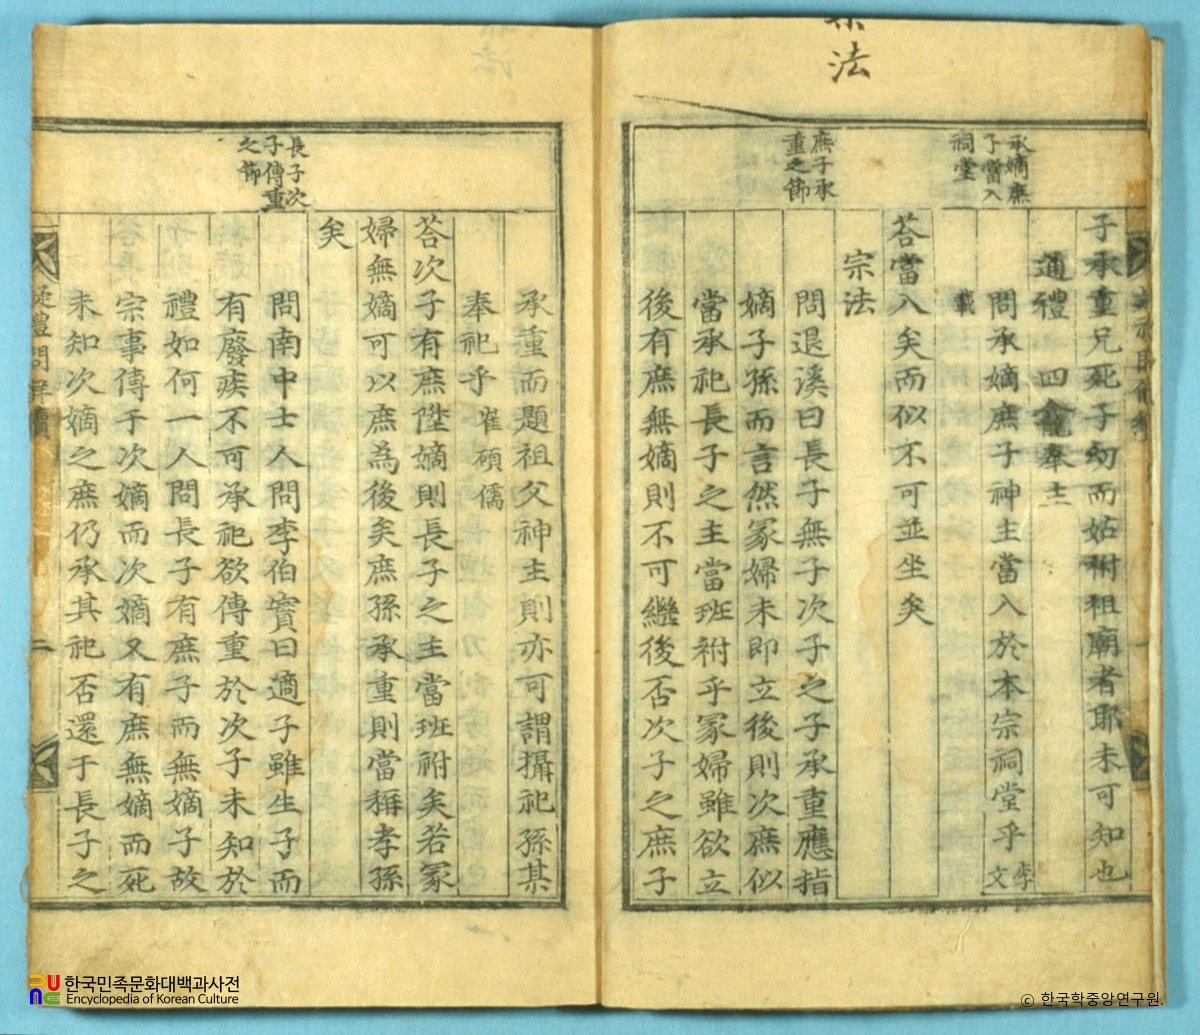 宗法
承嫡庶
子當入
祠堂
庶子承
重之節
子承重兄死子幼而姑祔祖廟者耶未可知也
通禮 四龕奉主
問承嫡庶子神主當入於本宗祠堂乎 李文
載
荅當入矣而似不可並坐矣
宗法
問退溪曰長子無子次子之子承重應指
嫡子孫而言然冢婦未即立後則次庶似
當承祀長子之主當班祔乎冢婦雖欲立
後有庶無嫡則不可繼後否次子之庶子
長子次
子傳重
之節
承重而題祖父神主則亦可謂攝祀孫某
奉祀乎 崔碩儒
荅次子有庶陞嫡則長子之主當班祔矣若冢
婦無嫡可以庶為後矣庶孫承重則當稱孝孫
矣
問南中士人問李伯實曰適子雖生子而
有廢疾不可承祀欲傳重於次子未知於
禮如何一人問長子有庶子而無嫡子故
宗事傳于次嫡而次嫡又有庶無嫡而死
未知次嫡之庶仍承其祀否還于長子之
疑禮問解續
二
한국민족문화대백과사전
Encyclopedia of Korean Culture
© 한국학중앙연구원.